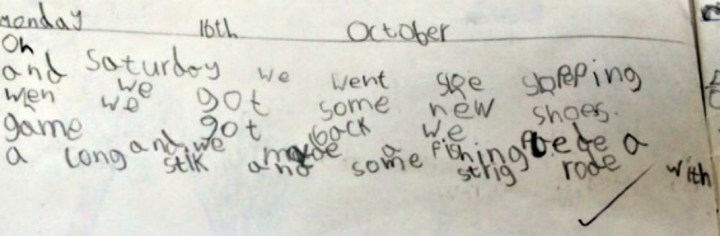 monday 16th October
On
and Saturday we went shopping
wen we we got some new shoes.
game got back we
a long and we made a fishing a
stik and some strig rode with